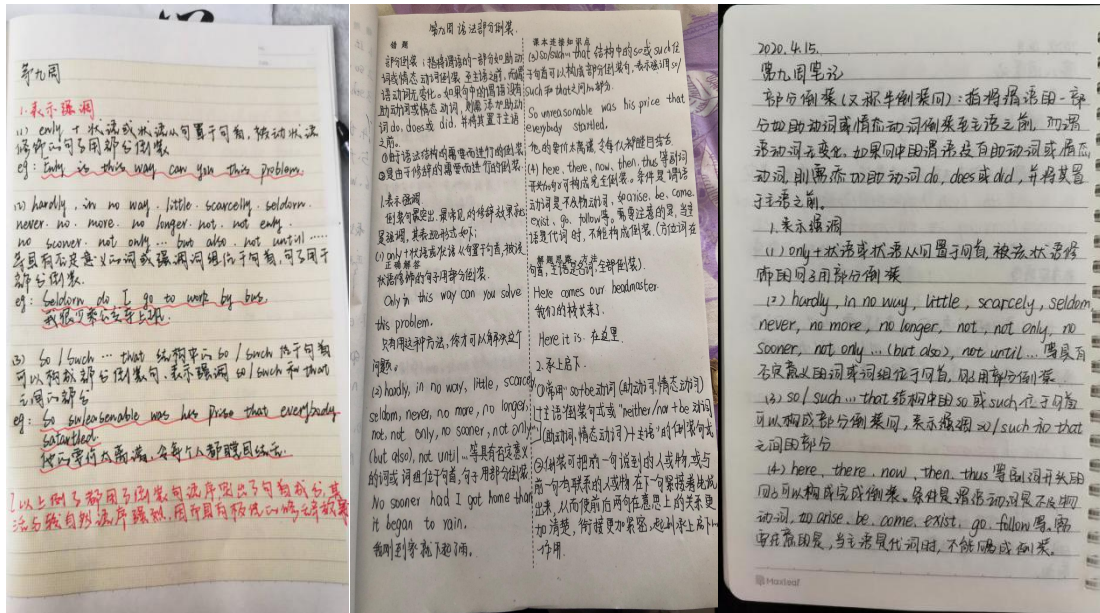 第九周
1.表示强调
(1) only + 状语或状语从句置于句首,被动状语
修饰的句子用部分倒装
eg: Only is this way can you this problems.
(2) hardly, in no way, little, scarcelly, seldorn,
never, no, more, no longer, not, not only,
no sooner, not only ... but also, not until ......
等具有否定意义的词或强调词组位于句首,句子用于
部分倒装.
eg: Seldorn do I go to work by bus.
我很少乘公交车上班.
(3) so / Such ... that 结构中的 so / such 位于句首
可以构成部分倒装句.表示强调 so/such 和 that
之间的部分
eg: So
was his prise that everybody
satartled.
他的要价太离谱,令每个人都瞠目结舌.
以上例子都用了倒装句语序突出了句首成分,其
语自然语序强烈,因而具有极强的修
第九周语法部分倒装.
错题
部分倒装:指将谓语的一部分如助动
词或情态动词倒装至主语之前,而谓
语动词无变化。如果句中的谓语没有
助动词或情态动词,则需添加助动
词do, does或 did, 并将其置于主语
之前。
①由于语法结构的需要而进行的倒装
②是由于修辞的需要而进行的倒装
1.表示强调
倒装句最突出、最常见的修辞效果就
是强调,其表现形式如下:
(1) only+状语或状语从句置于句首,被该
正确解答
状语修饰的句子用部分倒装.
Only in this way can you solve
this problem.
只有用这种方法,你才可以解决这个
问题。
(2) hardly, in no way, little, scarcely
seldom, never, no more, no longer,
not, not only, no sooner, not only
(but also), not until ... 等具有否定意义
的词或词组位于句首,句子用部分倒装
No sooner had I got home than
it began to rain.
我刚到家就下起了雨。
课本连接知识点
(3) so/such...that 结构中的so或such位
于句首可以构成部分倒装句,表示强调so/
such 和that之间的部分.
So unreasonable was his price that
everybody startled.
他的要价太离谱,令每个人都瞠目结舌
(4) here, there, now, then, thus等副词
开头的句子可构成完全倒装。条件是谓语
动词是不及物动词,如arise, be, come,
exist, go, follow等。需要注意的是,当主
语是代词时,不能构成倒装.(方位词在
解题思路、方法
句首,主语是名词,全部倒装).
Here comes our headmaster.
我们的校长来了.
Here it is. 在这里
2.承上启下.
①常用"so+be动词(助动词,情态动词)
+主语"倒装句式或"neither/nor+be动词
(助动词,情态动词)+主语"的倒装句式
②倒装可把前一句说到的人或物,或与
前一句有联系的人或物在下一句紧接着先说
出来,从而使前后两句在意思上的关系更
加清楚,衔接更加紧密,起到承上启下的
作用.
2020.4.15.
第九周笔记
部分倒装(又称半倒装句):指将谓语的一部
分如助动词或情态动词倒装至主语之前,而谓
语动词无变化。如果句中的谓语没有助动词或情态
动词,则需添加助动词do, does或did, 并将其置
于主语之前。
1.表示强调
(1) only+状语或状语从句置于句首,被该状语修
饰的句子用部分倒装
(2) hardly, in no way, little, scarcely, seldom
never, no more, no longer, not, not only, no
sooner, not only...(but also), not until... 等具有
否定意义的词或词组位于句首,句子用部分倒装
(3) so/ such... that结构中的so或such,位于句首
可以构成部分倒装句,表示强调so/such 和 that
之间的部分
(4) here, there, now, then, thus等副词开头的
句子可以构成完成倒装。条件是谓语动词是不及物
动词,如arise, be, come, exist, go, follow等。需
要注意的是,当主语是代词时,不能构成倒装。
Maxleaf